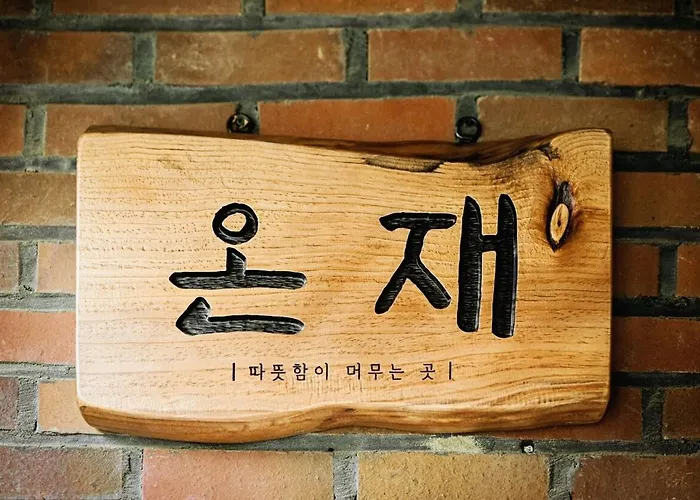 온재
| 따뜻함이 머무는 곳 |